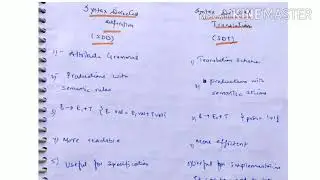 KINEMASTER
Syntax Directed Syntax Directed
Definition Translation
(SDD) (SDT)
1)- Attribute Grammar 1) Translation Scheme
2) Productions with 2) Productions with
semantic rules semantic actions
3) E→E1+T { E.val = E1.val+T.val } 3) E→E+T {print '+'}
4) More readable 4) More efficient
5) Useful for specification 5) Useful for implementation